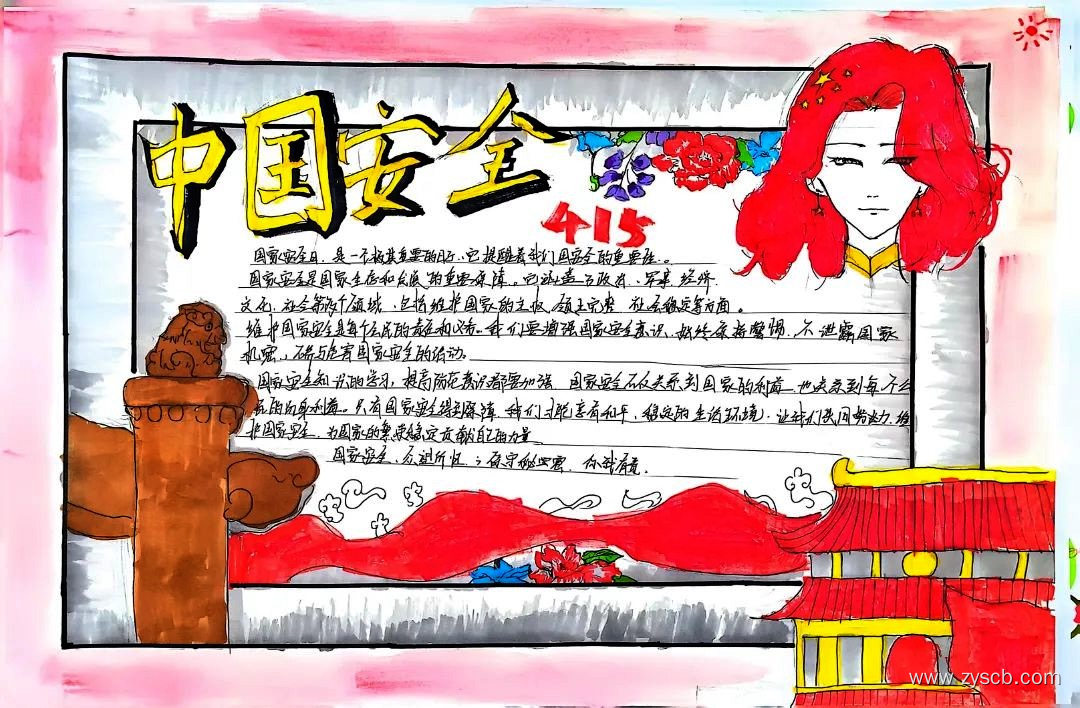 中国安全
415
国家安全日，是一个极其重要的日子，它提醒着我们国家安全的重要性。
国家安全是国家生存和发展的重要保障。它涵盖了政治、军事、经济
文化、社会等多个领域，包括维护国家的主权、领土完整、社会稳定等方面。
维护国家安全是每个公民的责任和义务。我们要增强国家安全意识，始终保持警惕，不泄露国家
机密，不参与危害国家安全的活动。
国家安全知识的学习，提高防范意识都要加强。国家安全不仅关系到国家的利益，也关系到每个公
民的切身利益。只有国家安全得到保障，我们才能享有和平、稳定的生活环境，让我们共同努力，维
护国家安全，为国家的繁荣稳定贡献自己的力量
国家安全，
保守秘密，你我有责。
www.zyscb.com